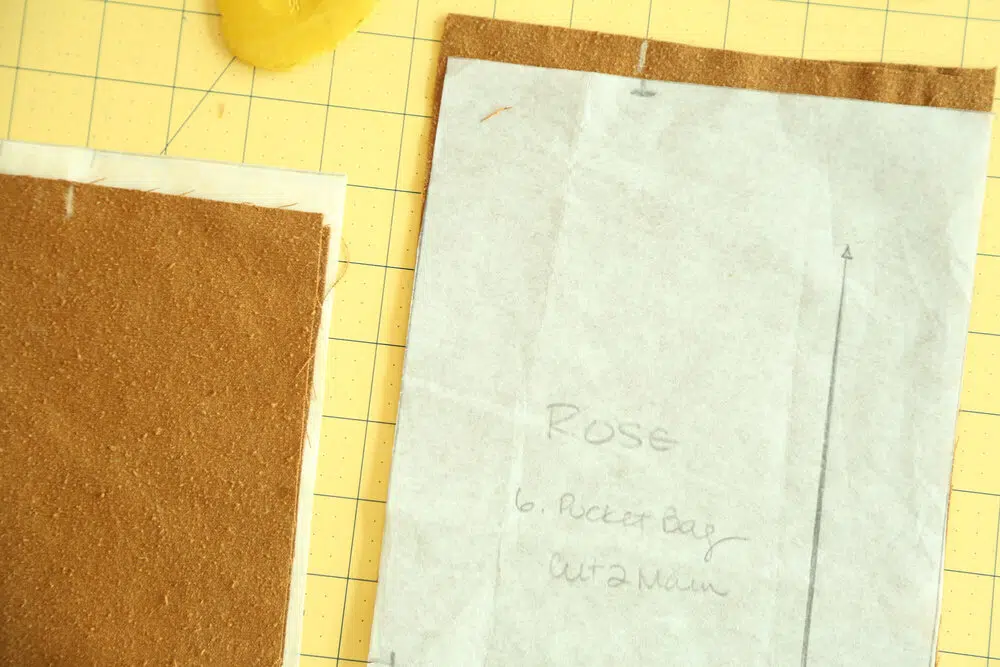 ROSE
6. Pocket Bag
Cut 2 Main